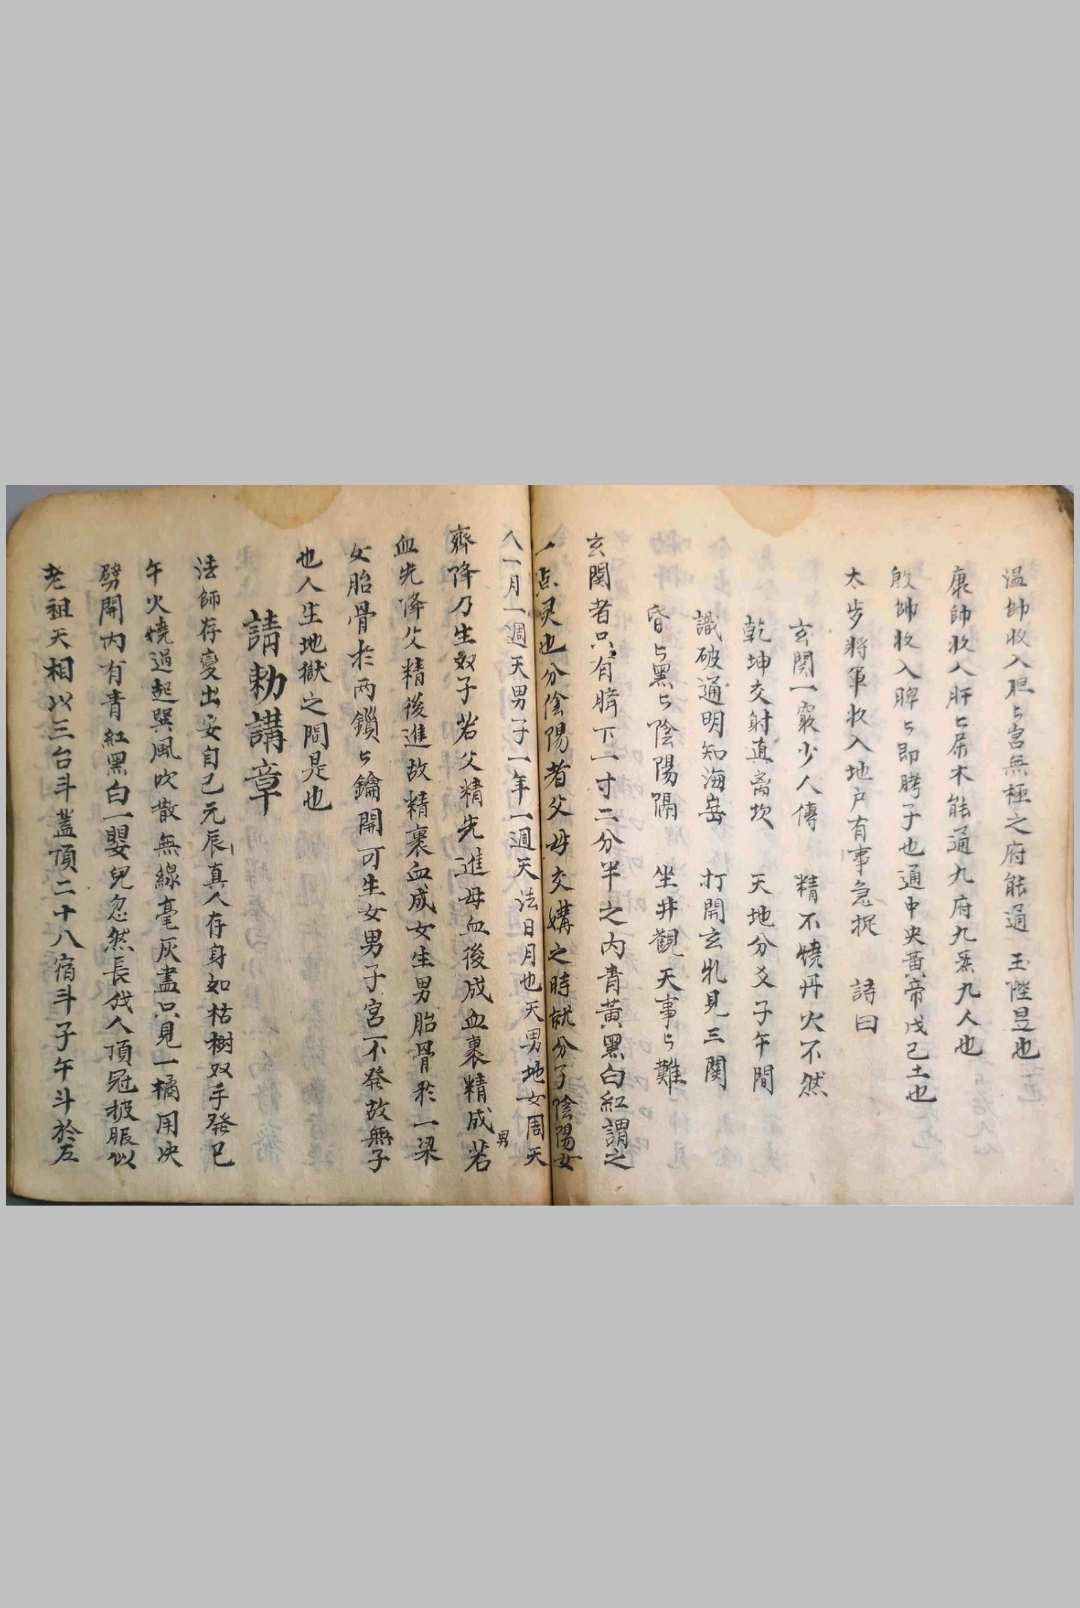 溫帥收入胆〻宮無極之府能通 玉陛昱也
康帥收入肝〻屬木能通九府九炁九人也
殷帥收入脾〻即脖子也通中央黃帝戊己土也
太歩將軍收入地户有事急捉 詩曰
玄関一竅少人傳 精不燒丹火不然
乾坤交射直离坎 天地分爻子午間
識破通明知海岳 打開玄牝見三関
昏〻黑〻陰陽隔 坐井觀天事〻難
玄関者只有臍下一寸二分半之內青黃黑白紅謂之
一点灵也分陰陽者父母交媾之時就分了陰陽女
人一月一週天男子一年一週天法日月也天男地女周天
齊降乃生双子若父精先進母血後成血裹精成男若
血先降父精後進故精裹血成女生男胎骨於一梁
女胎骨於两鎖〻鑰開可生女男子宮不發故無子
也人生地獄之間是也
請勅講章
法師存變出妄自己元辰真人存身如枯樹双手發巳
午火燒過起巽風吹散無線毫灰盡只見一橘用决
劈開內有青紅黑白一嬰兒忽然長成人頂冠披服似
老祖天相以三台斗蓋頂二十八宿斗子午斗於左